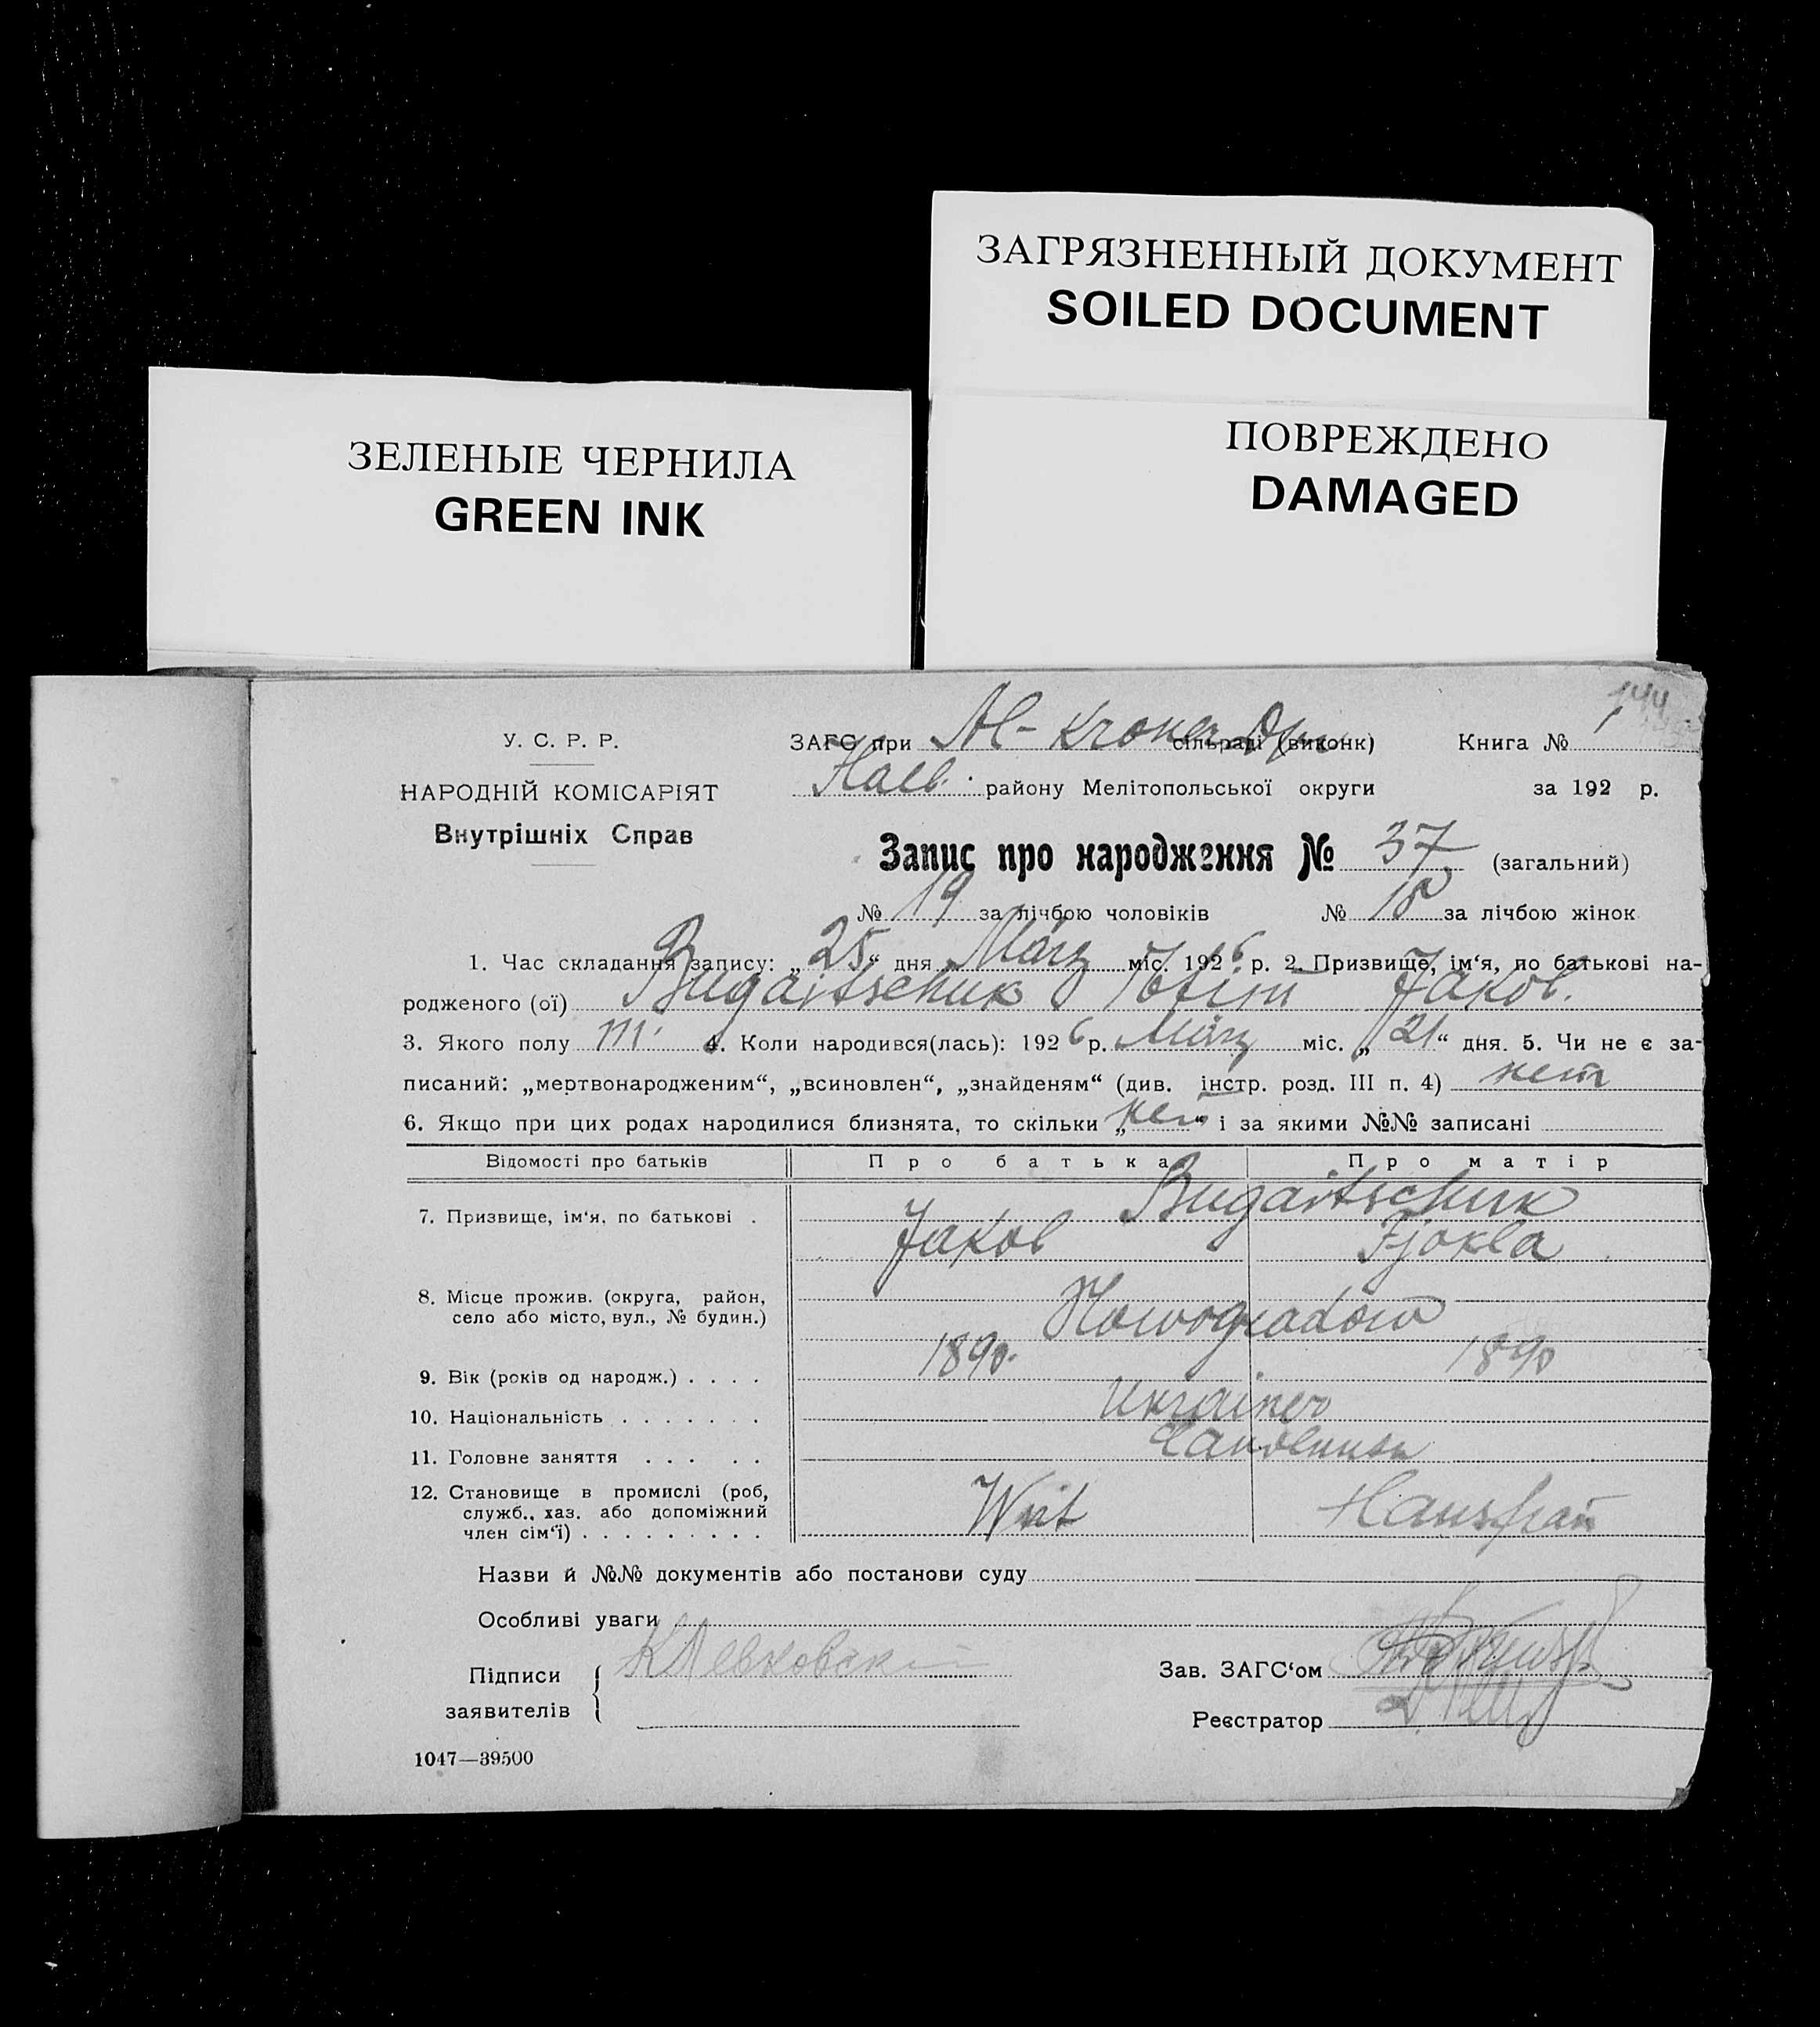 ЗАГРЯЗНЕННЫЙ ДОКУМЕНТ
SOILED DOCUMENT
ЗЕЛЕНЫЕ ЧЕРНИЛА
GREEN INK
ПОВРЕЖДЕНО
DAMAGED
144
У. С. Р. Р.
НАРОДНІЙ КОМІСАРІЯТ
Внутрішніх Справ
ЗАГС при Al-Kronen сільраді (виконк) Книга № 1
Halb. району Мелітопольської округи за 192 р.
Запис про народження № 37 (загальний)
№ 19 за лічбою чоловіків № 18 за лічбою жінок
1. Час складання запису: „25“ дня März міс. 1926 р. 2. Призвище, ім‘я, по батькові на-
родженого (ої) Bugaitschuk Jakob.
3. Якого полу m. 4. Коли народився(лась): 1926 р. März міс. „21“ дня. 5. Чи не є за-
писаний: „мертвонародженим“, „всиновлен“, „знайденям“ (див. інстр. розд. III п. 4) нет
6. Якщо при цих родах народилися близнята, то скільки „нет“ і за якими №№ записані
Відомості про батьків Про батька Про матір
7. Призвище, ім‘я, по батькові . Bugaitschuk
Jakob Fjokla
8. Місце прожив. (округа, район,
село або місто, вул., № будин.) Nowogradow
9. Вік (років од народж.) . . . . 1890. 1890
10. Національність . . . . . . . Ukrainer
11. Головне заняття . . . . .
12. Становище в промислі (роб,
служб., хаз. або допоміжний
член сім‘ї) . . . . . . . . . Wirt Hausfrau
Назви й №№ документів або постанови суду
Особливі уваги
Підписи
заявителів
Зав. ЗАГС‘ом
Реєстратор
1047—39500